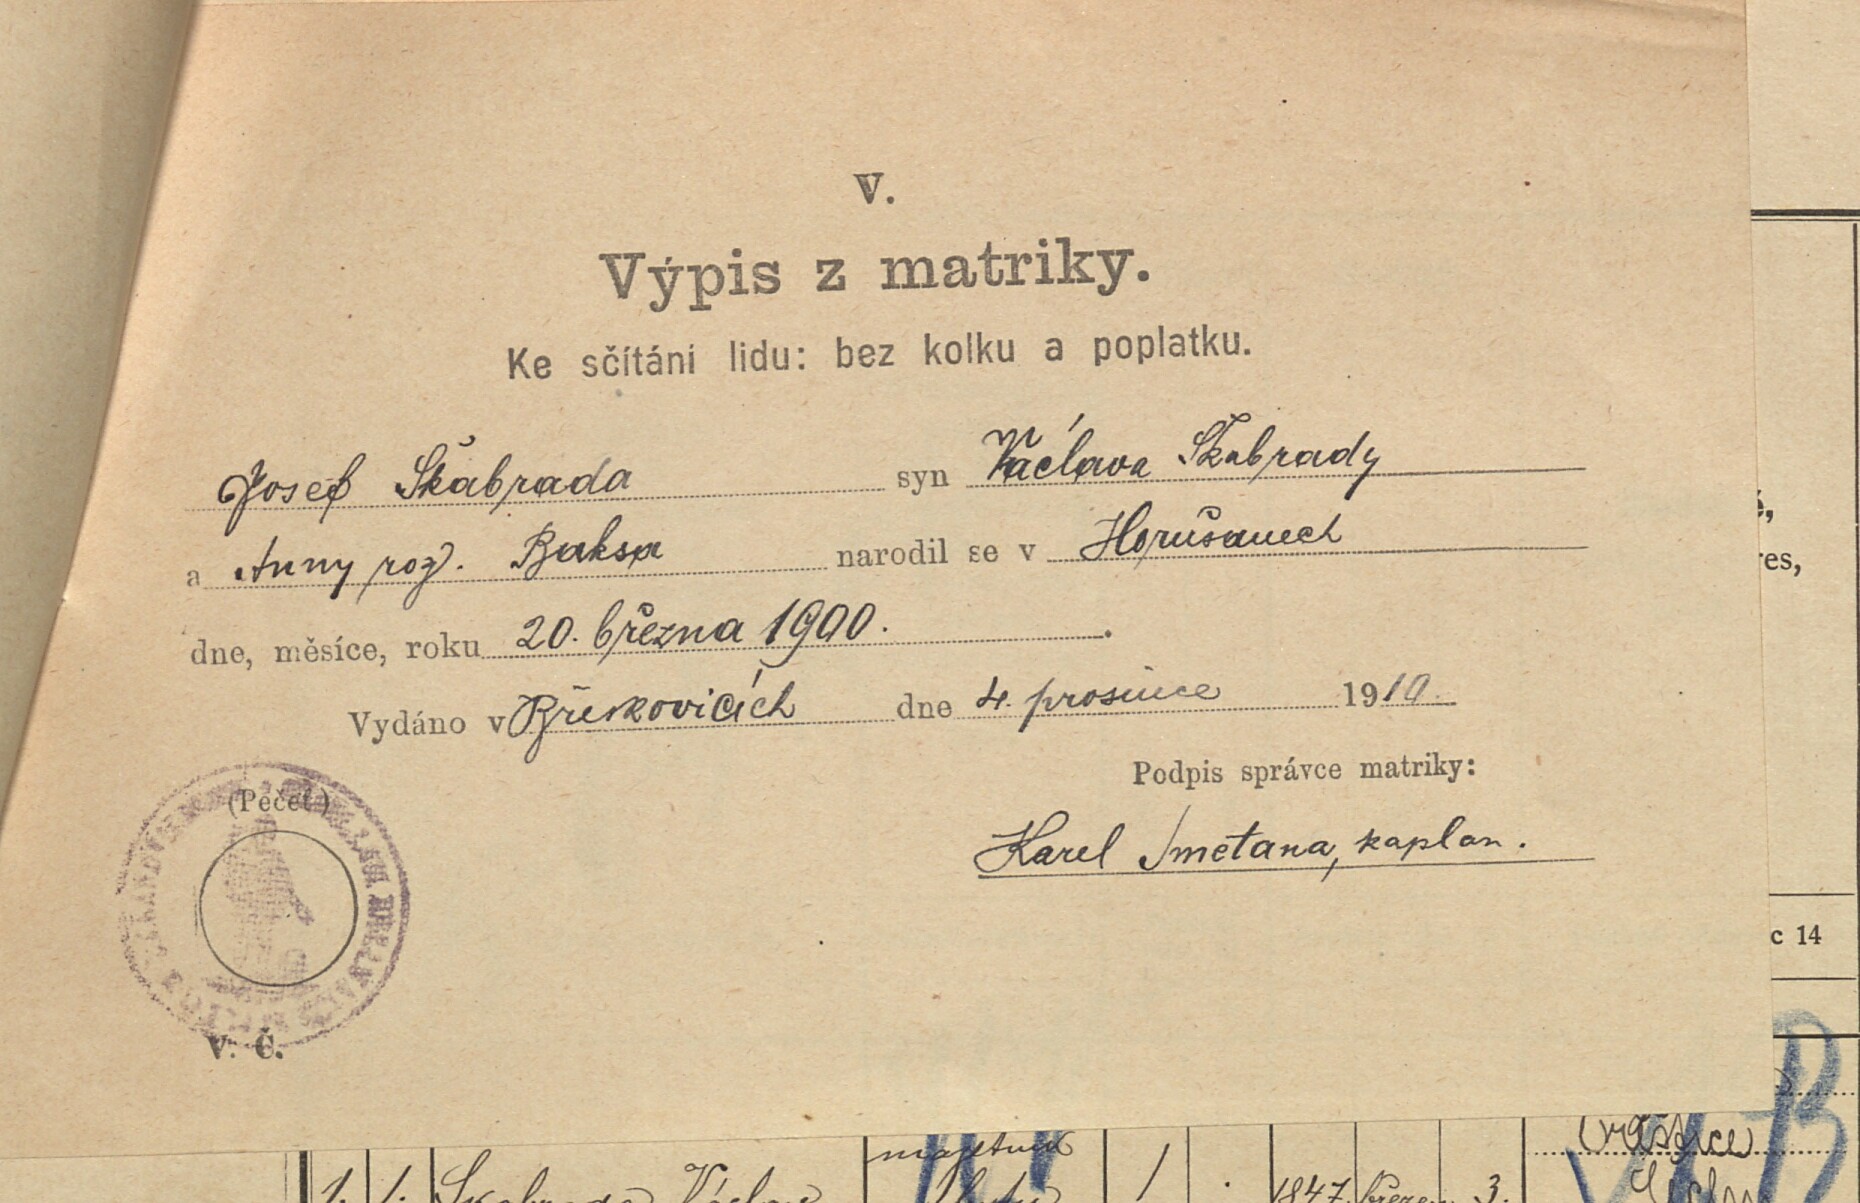 V.
Výpis z matriky.
Ke sčítání lidu: bez kolku a poplatku.
Josef Škabrada syn Václava Škabrady
a Anny roz. Baksa narodil se v Horušanech
dne, měsíce, roku 20. března 1900.
Vydáno v Březkovicích dne 4. prosince 1910.
Podpis správce matriky:
(Pečeť)
Karel Smetana, kaplan.
V. Č.
res,
c 14
majetník
1. 1. Škabrada Václav 1 1847 březen 3.